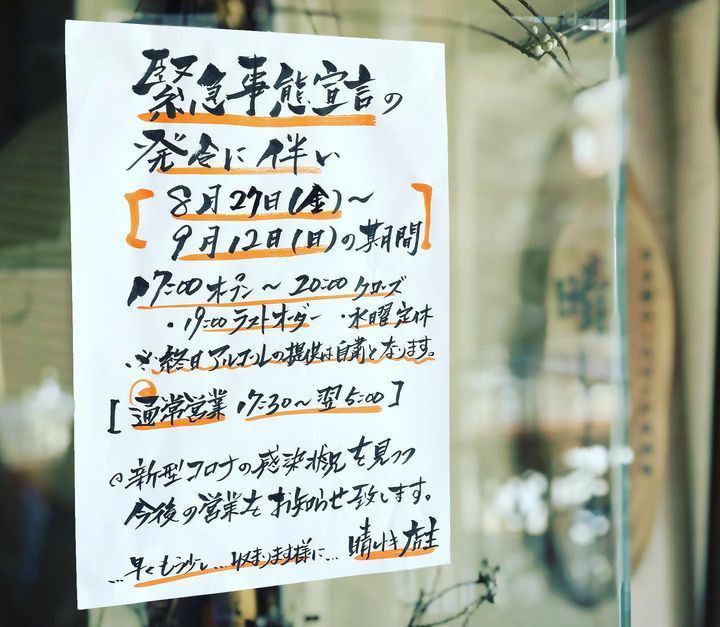 緊急事態宣言の
発令に伴い
[ 8月27日(金)〜
9月12日(日)の期間 ]
17:00オープン〜20:00クローズ
・19:00ラストオーダー ・水曜定休
・※終日アルコールの提供は自粛となります。
[通常営業 17:30〜翌5:00]
◎新型コロナの感染状況を見つつ
今後の営業をお知らせ致します。
…早くもう少し…収まります様に… 晴レトキ店主
晴